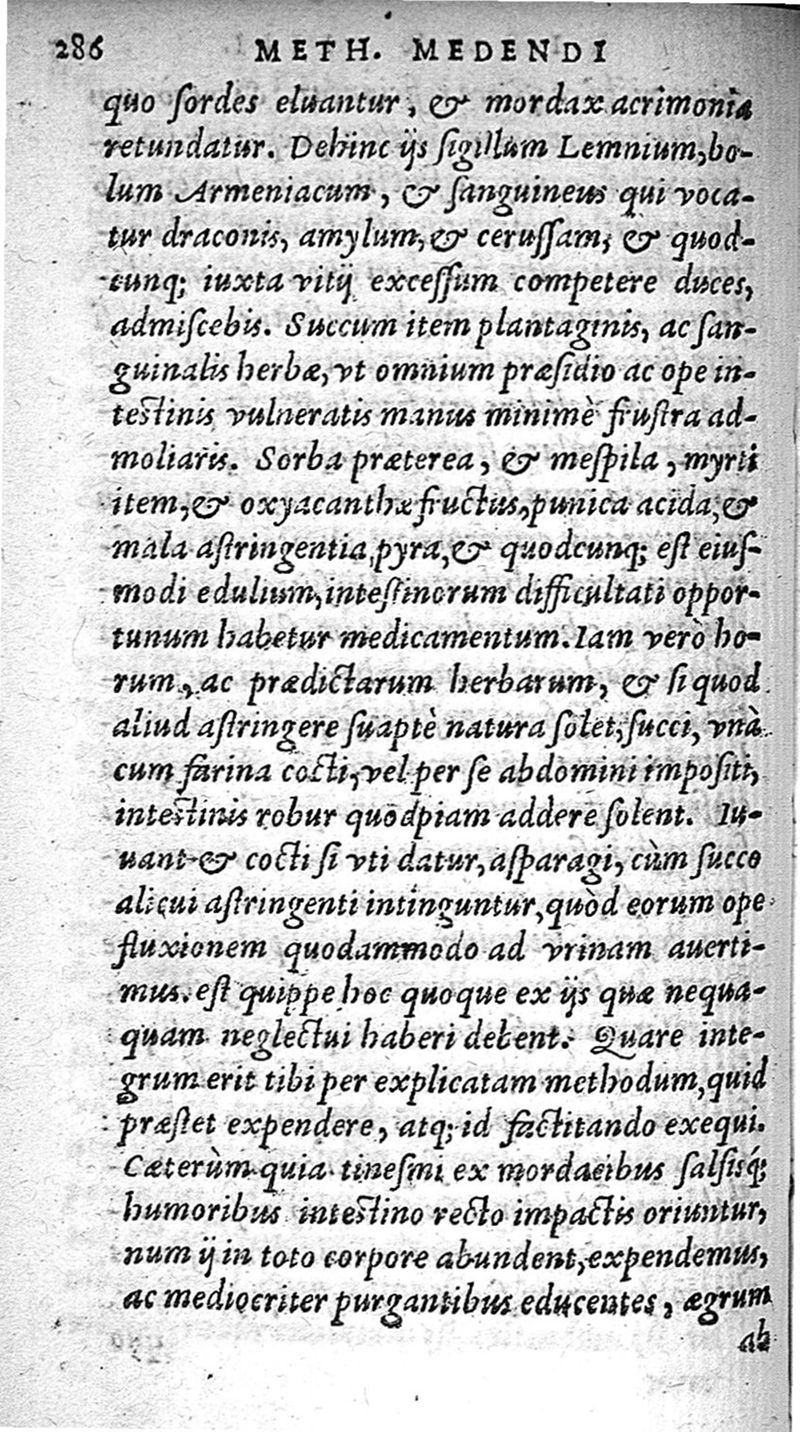 286 METH. MEDENDI
quo sordes eluantur, & mordax acrimonia
retundatur. Dehinc ijs sigillum Lemnium, bo-
lum Armeniacum, & sanguineus qui voca-
tur draconis, amylum, & cerussam; & quod-
cunq; iuxta vitij excessum competere duces,
admiscebis. Succum item plantaginis, ac san-
guinalis herbæ, vt omnium præsidio ac ope in-
testinis vulneratis manus minimè frustra ad-
moliaris. Sorba præterea, & mespila, myrti
item, & oxyacanthæ fructus, punica acida, &
mala astringentia, pyra, & quodcunq; est eius-
modi edulium, intestinorum difficultati oppor-
tunum habetur medicamentum. Iam verò ho-
rum, ac prædictarum herbarum, & si quod
aliud astringere suaptè natura solet, succi, vnà
cum farina cocti, vel per se abdomini impositi,
intestinis robur quodpiam addere solent. Iu-
uant & cocti si vti datur, asparagi, cùm succo
alicui astringenti intinguntur, quòd eorum ope
fluxionem quodammodo ad vrinam auerti-
mus. est quippe hoc quoque ex ijs quæ nequa-
quam neglectui haberi debent. Quare inte-
grum erit tibi per explicatam methodum, quid
præstet expendere, atq; id factitando exequi.
Cæterùm quia tinesmi ex mordacibus salsisq́;
humoribus intestino recto impactis oriuntur,
num ij in toto corpore abundent, expendemus,
ac mediocriter purgantibus educentes, ægrum
ab